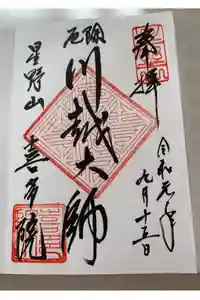 奉拝
令和元年
九月十五日
厄除
川越大師
星野山
喜多院